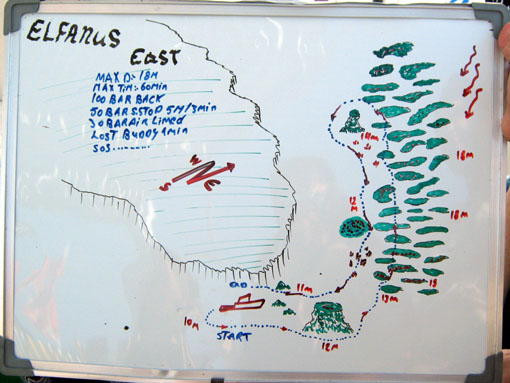 ELFANUS
EAST
MAX D: 18M
MAX TIM: 60min
100 BAR BACK
50 BAR S.STOP 5M/3min
30 BAR AIR LIMED
LOST BUDDY 1min
SOS........
N
S
E
14M
18M
12
M
18M
18
13M
11M
10M
START
12M